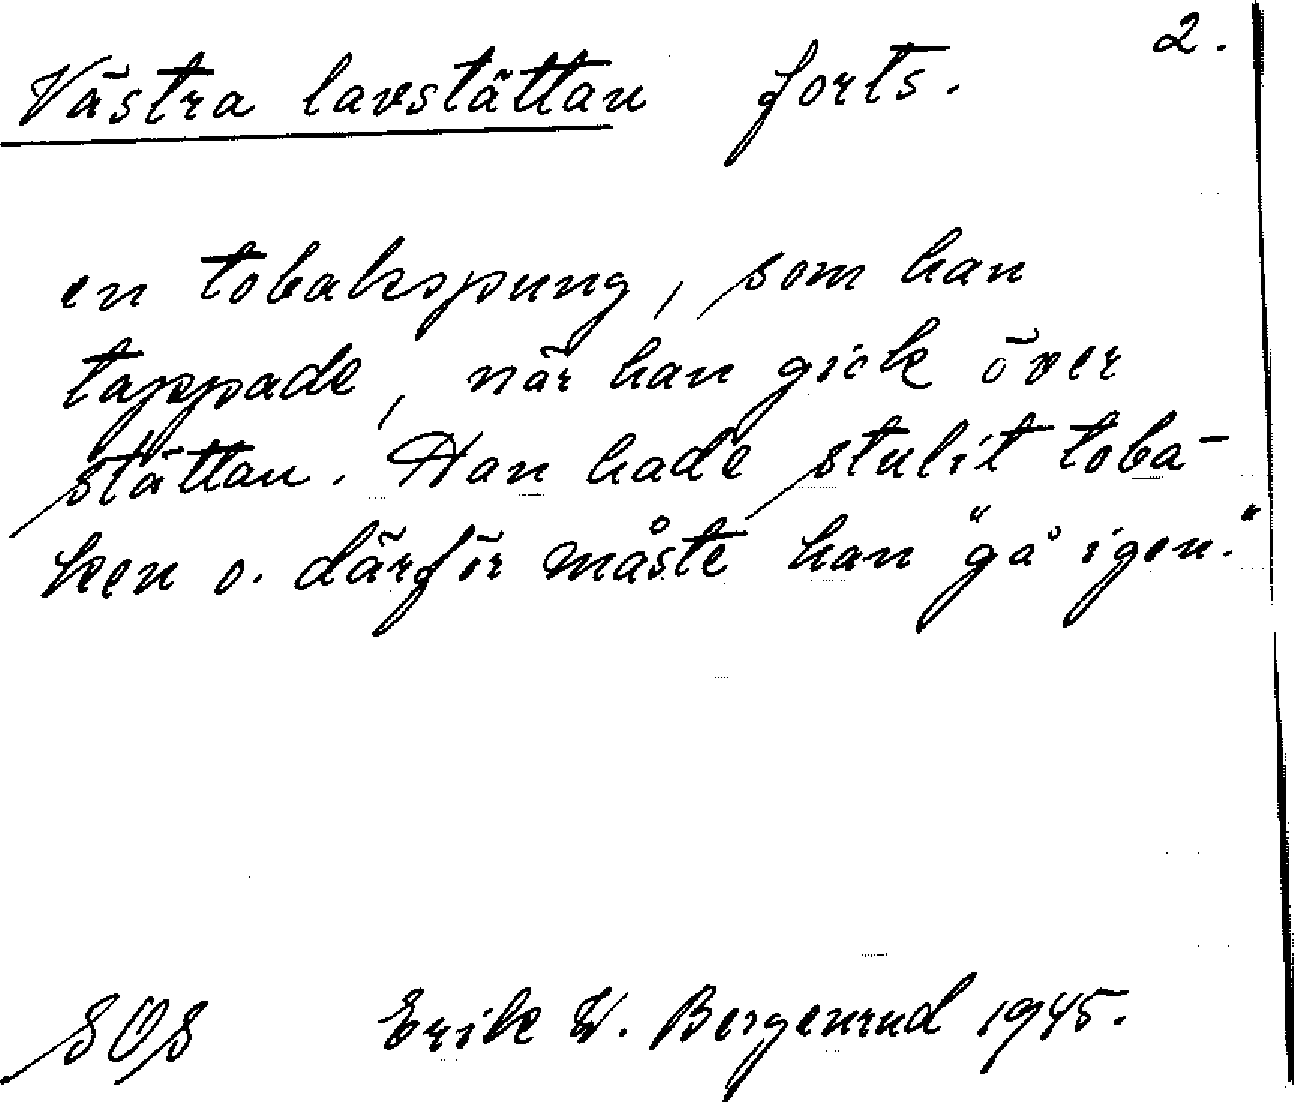 2.
Västra lavstättan forts.
en tobakspung, som han
tappade, när han gick över
stättan. Han hade stulit toba-
ken o. därför måste han "gå igen."
SOS Erik W. Bergenrud 1945.